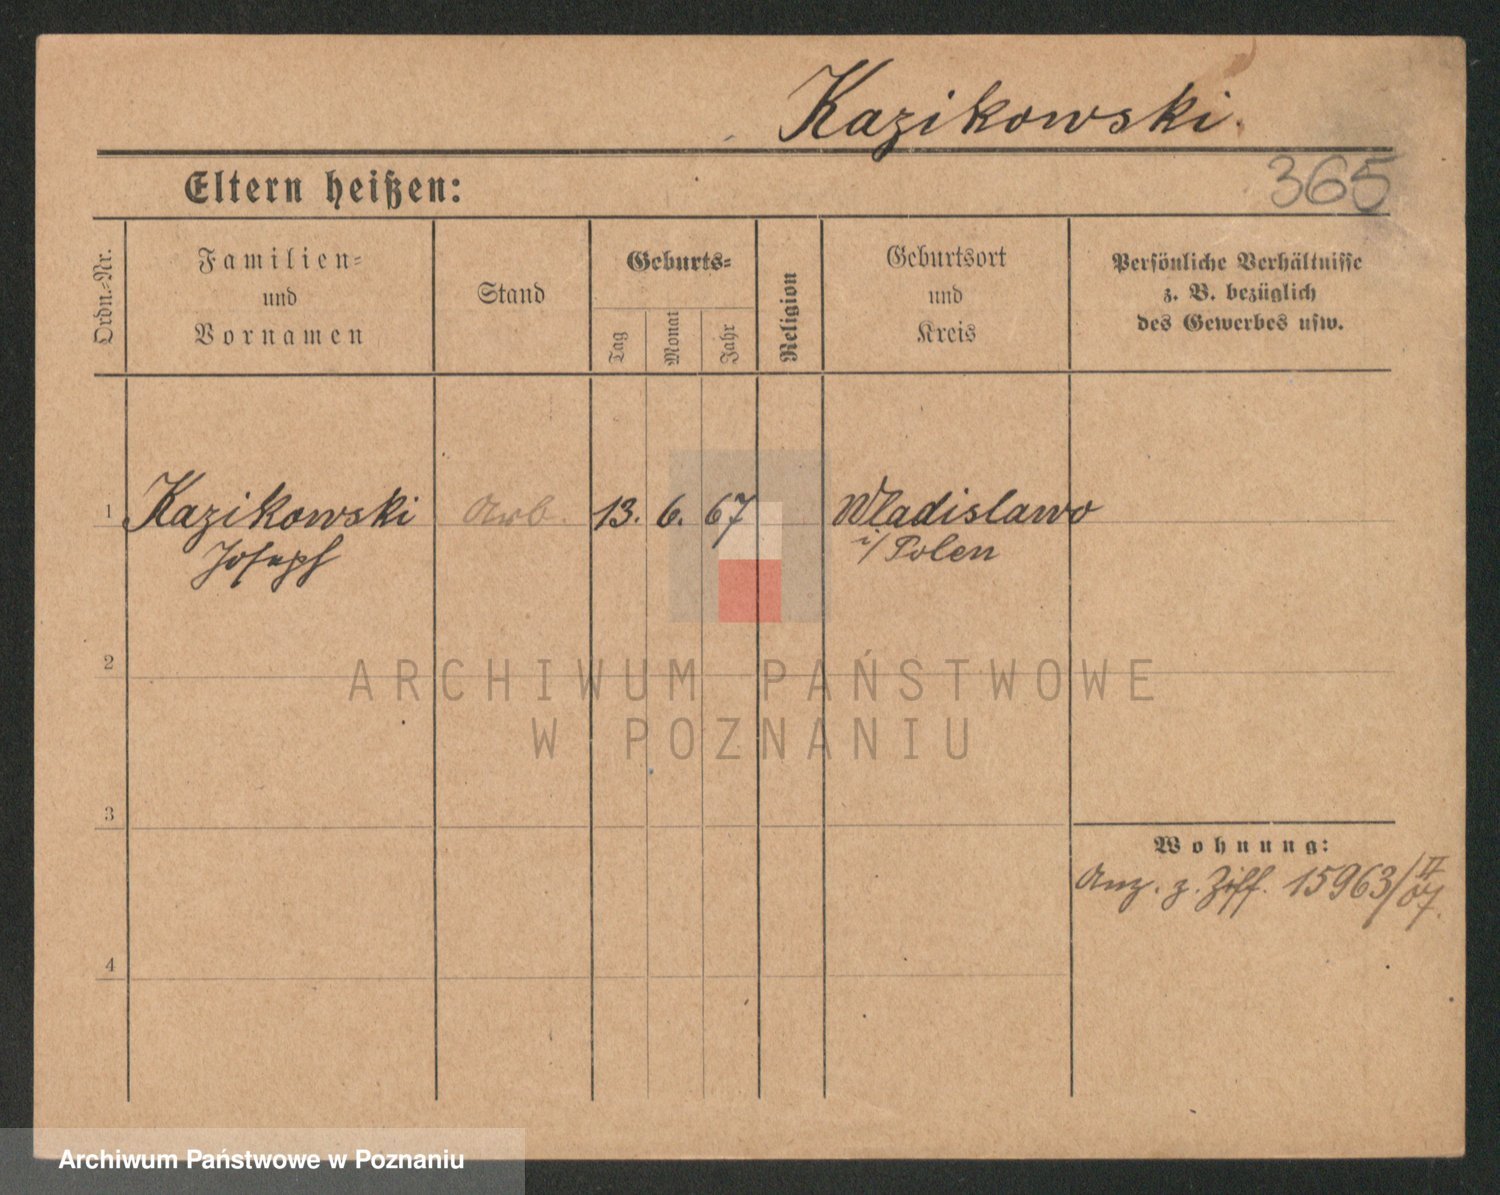 Kazikowski.
Eltern heißen:
365
Ordn.-Nr.
Familien-
und
Vornamen
Stand
Geburts-
Tag
Monat
Jahr
Religion
Geburtsort
und
Kreis
Persönliche Verhältnisse
z. B. bezüglich
des Gewerbes usw.
1 Kazikowski Arb. 13. 6. 67 Wladislawo
Joseph i/Polen
2
ARCHIWUM PAŃSTWOWE
W POZNANIU
3
Wohnung:
Anz. z. Ziff. 15963/II 07.
4
Archiwum Państwowe w Poznaniu